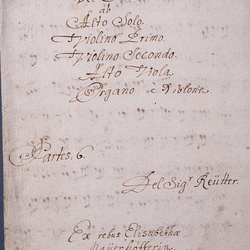 ab
Alto Solo.
Violino Primo.
Violino Secondo.
Alto Viola
Organo è Violone
Partes. 6.
Del Sigr Reütter.
Ex rebus Elisabethæ
Mayerhofferin